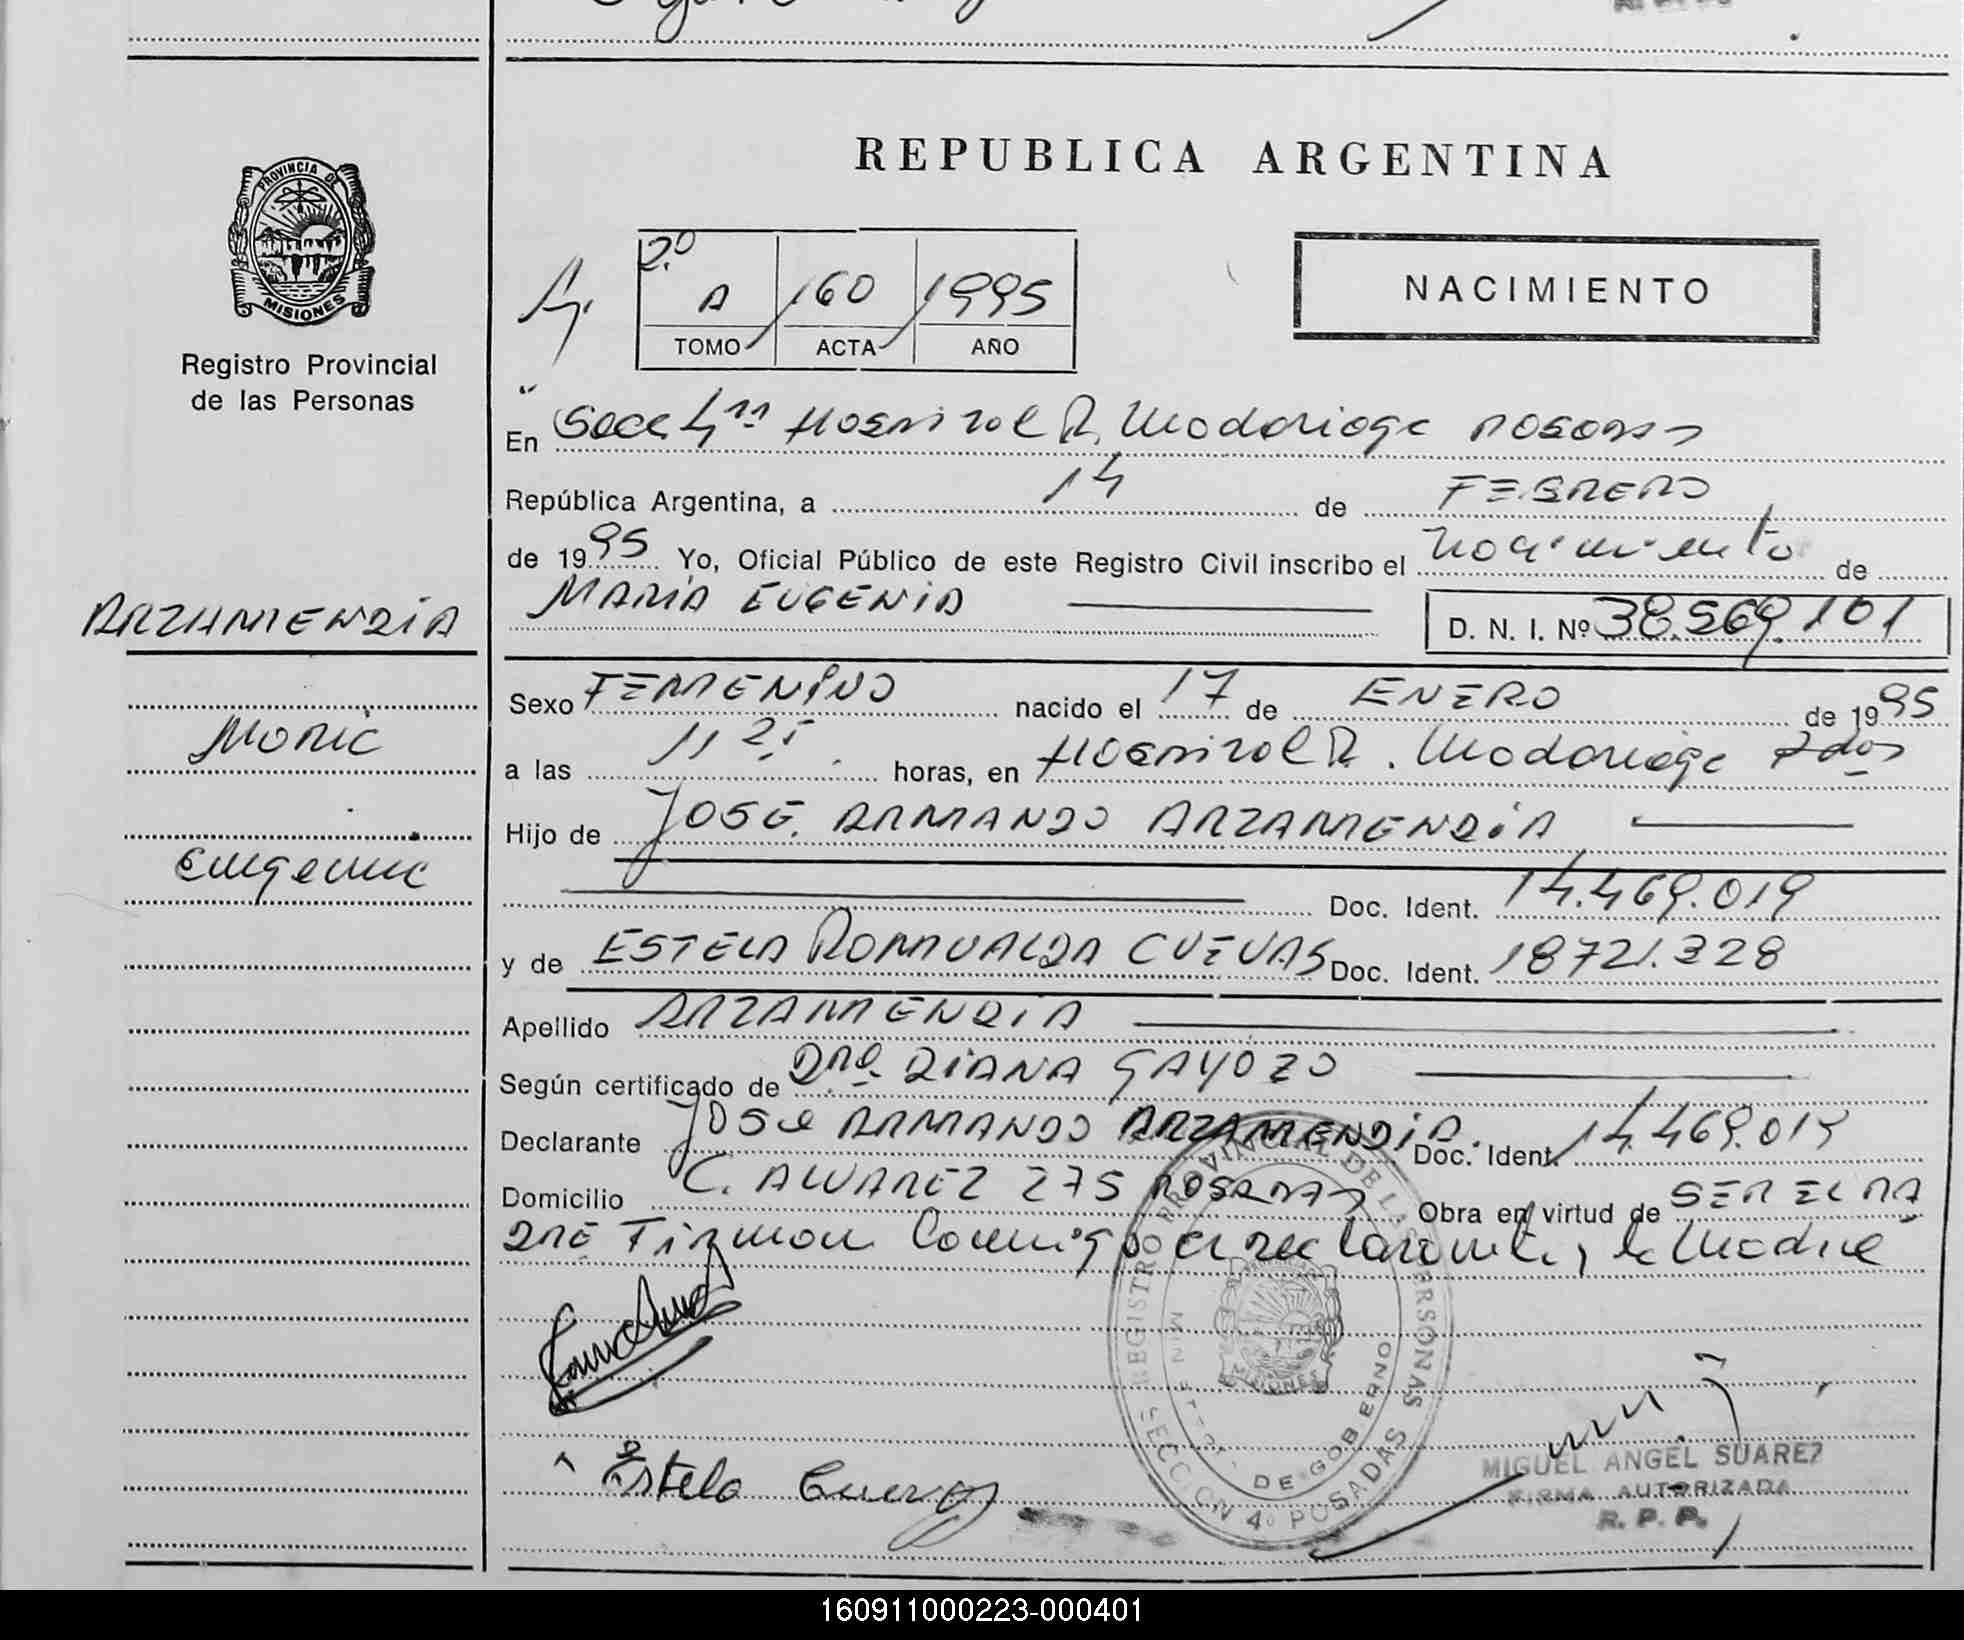 PROVINCIA DE
MISIONES
Registro Provincial
de las Personas
REPUBLICA ARGENTINA
2º
A 160 1995
TOMO ACTA AÑO
NACIMIENTO
En Secc 4ta Hospital R. Madariaga Posadas
República Argentina, a 14 de FEBRERO
de 1995 Yo, Oficial Público de este Registro Civil inscribo el nacimiento de
ARZAMENDIA
MARIA EUGENIA D. N. I. Nº 38.569.101
Sexo FEMENINO nacido el 17 de ENERO de 1995
Maria
a las 11 25 horas, en Hospital R. Madariaga Pdas
Hijo de JOSE ARMANDO ARZAMENDIA
Eugenia
Doc. Ident. 14.469.019
y de ESTELA ROMUALDA CUEVAS Doc. Ident. 18721.328
Apellido ARZAMENDIA
Según certificado de Dra. DIANA GAYOZO
Declarante Jose ARMANDO ARZAMENDIA. Doc. Ident. 14.469.019
Domicilio C. ALVAREZ 275 POSADAS Obra en virtud de SER EL PA
DRE Firman Conmigo el declarante y la Madre
REGISTRO PROVINCIAL DE LAS PERSONAS
DE GOBERNO
MISIONES
SECCION 4º POSADAS
Estela Cuevas
MIGUEL ANGEL SUAREZ
FIRMA AUTORIZADA
R. P. P.
160911000223-000401